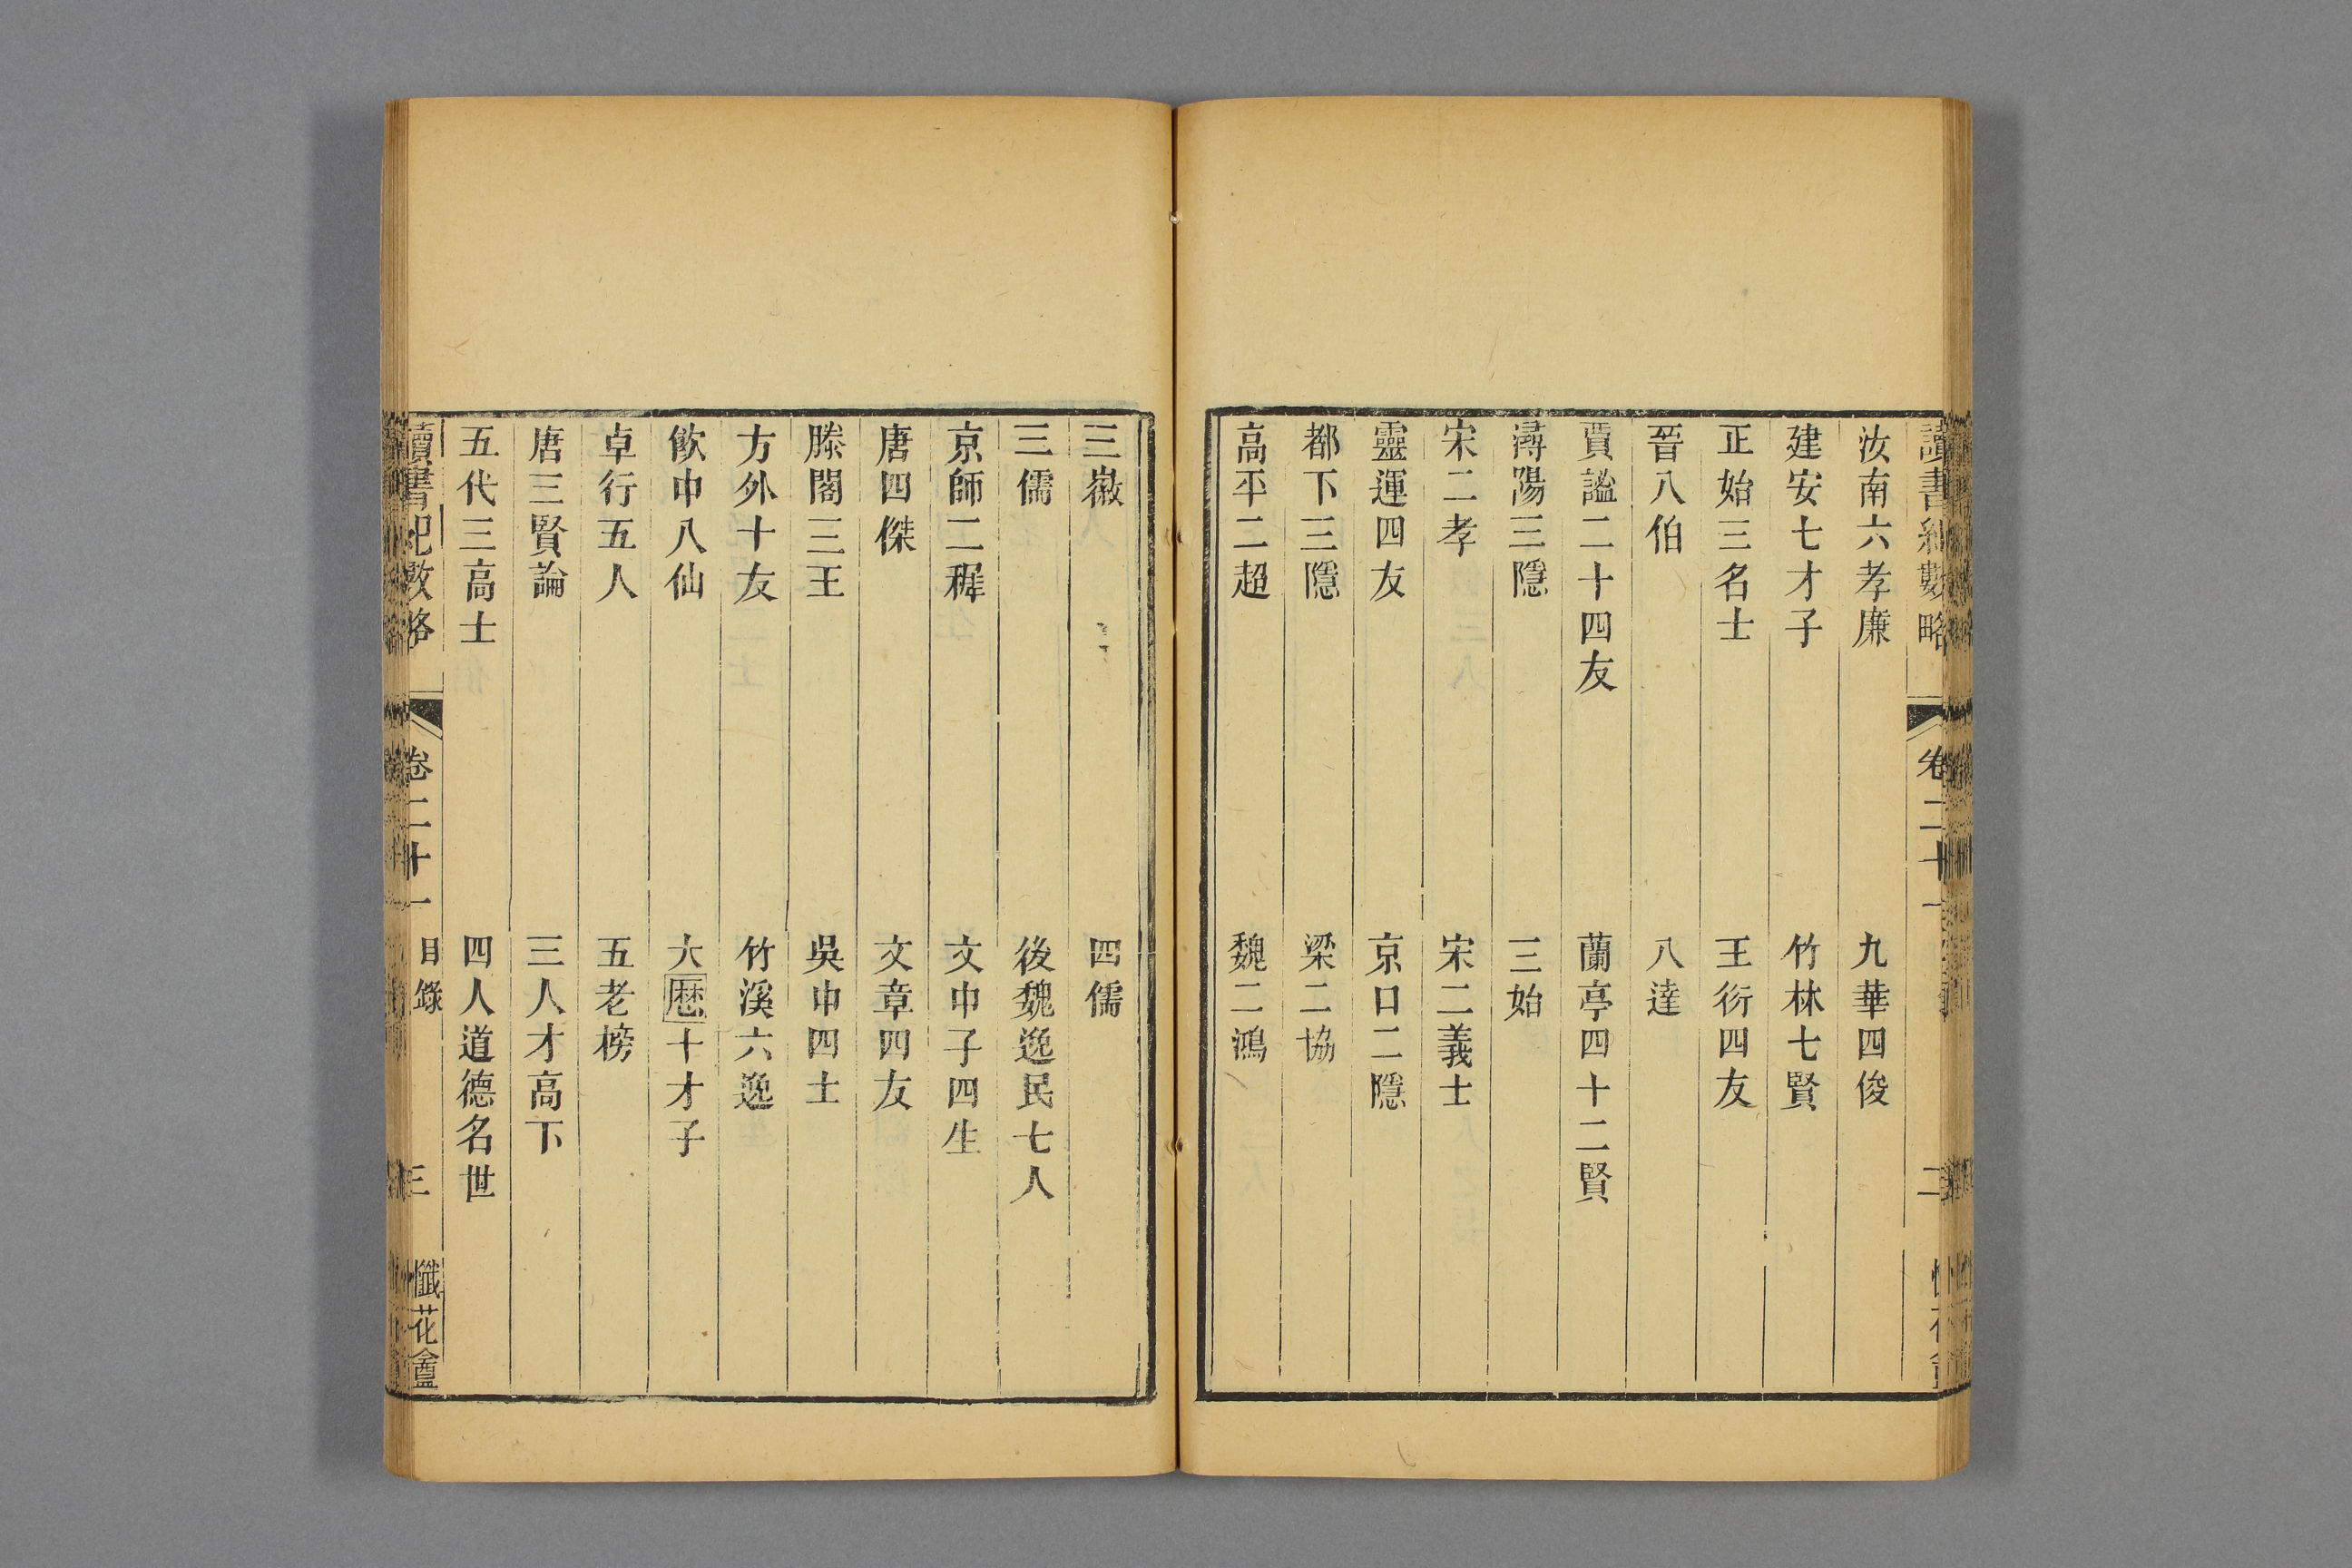 讀書紀數略 卷二十一 二
汝南六孝廉 九華四俊
建安七才子 竹林七賢
正始三名士 王衍四友
晉八伯 八達
賈謐二十四友 蘭亭四十二賢
潯陽三隱 三始
宋二孝 宋二義士
靈運四友 京口二隱
都下三隱 梁二協
高平二超 魏二鴻
三嶶 四儒
三儒 後魏逸民七人
京師二穉 文中子四生
唐四傑 文章四友
滕閣三王 吳中四士
方外十友 竹溪六逸
飲中八仙 大厯十才子
卓行五人 五老榜
唐三賢論 三人才高下
五代三高士 四人道德名世
讀書紀數略 卷二十一 目錄 三 懺花盦